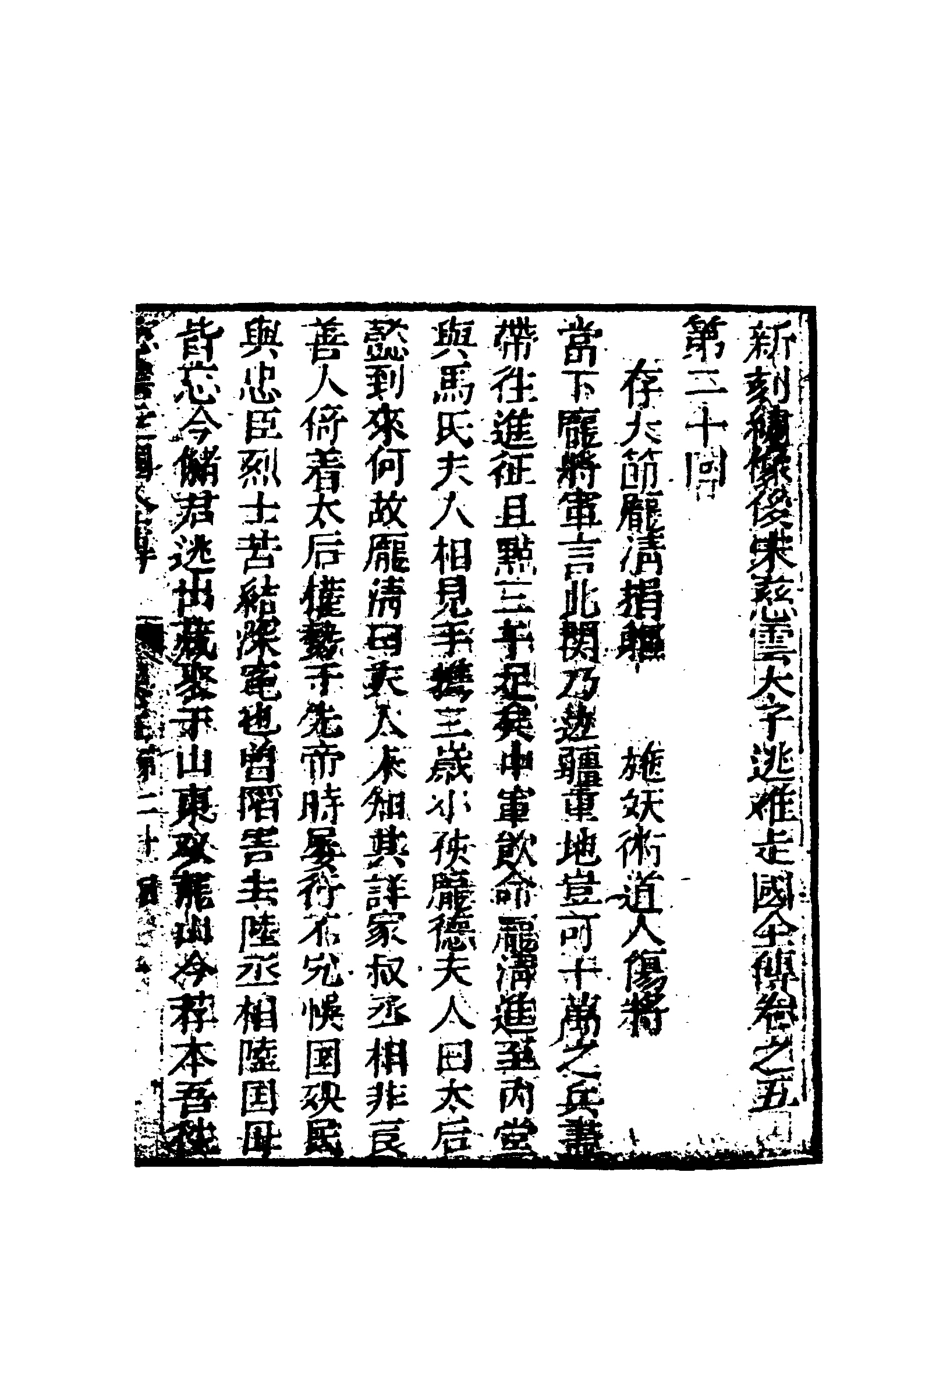 新刻繡像後宋慈雲太子逃难走國全傳卷之五
第二十回
存大節龐清捐軀　施妖術道人傷將
當下龐將軍言此関乃边疆重地豈可十萬之兵盡
帶往進征且點三千足矣中軍飲命龐清進至內堂
與馬氏夫人相見手攜三歲小孩龐德夫人曰太后
懿到來何故龐清曰夫人未知其詳家叔丞相非良
善人倚着太后權勢于先帝時屡行不軌悞国殃民
與忠臣烈士苦結深冤也曾陷害去陸丞相陸国母
皆忘今儲君逃出藏娶于山東双龍山今荐本吾
第二十回